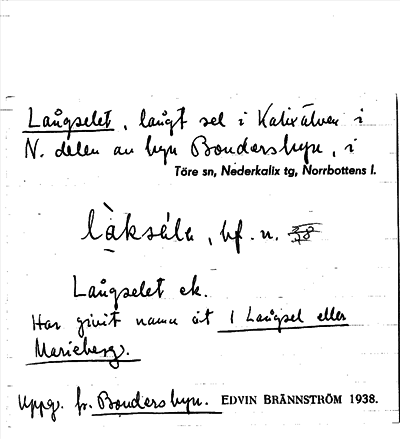 Långselet, långt sel i Kalixälven i
N. delen av byn Bondersbyn, i
Töre sn, Nederkalix tg, Norrbottens l.
làksélα, bf. n.
Långselet ek.
Har givit namn åt 1 Långsel eller
Marieberg.
Uppg. fr. Bondersbyn. EDVIN BRÄNNSTRÖM 1938.